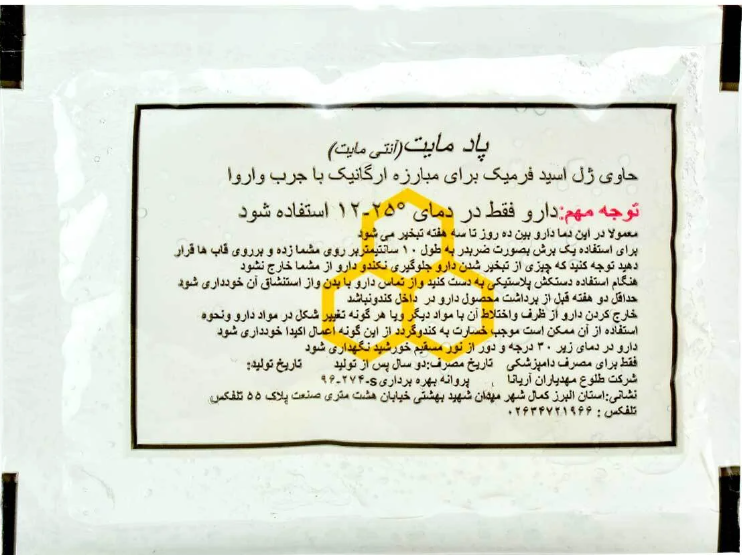 پاد مایت(آنتی مایت)
حاوی ژل اسید فرمیک برای مبارزه ارگانیک با جرب واروا
توجه مهم:دارو فقط در دمای °۲۵-۱۲ استفاده شود
معمولا در این دما دارو بین ده روز تا سه هفته تبخیر می شود
برای استفاده یک برش بصورت ضربدر به طول ۱۰ سانتیمتربر روی مشما زده و برروی قاب ها قرار
دهید توجه کنید که چیزی از تبخیر شدن دارو جلوگیری نکندو دارو از مشما خارج نشود
هنگام استفاده دستکش پلاستیکی به دست کنید واز تماس دارو با بدن واز استنشاق آن خودداری شود
حداقل دو هفته قبل از برداشت محصول دارو در داخل کندونباشد
خارج کردن دارو از ظرف واختلاط آن با مواد دیگر ویا هر گونه تغییر شکل در مواد دارو ونحوه
استفاده از آن ممکن است موجب خسارت به کندوگردد از این گونه اعمال اکیدا خودداری شود
دارو در دمای زیر ۳۰ درجه و دور از نور مستقیم خورشید نگهداری شود
فقط برای مصرف دامپزشکی تاریخ مصرف:دو سال پس از تولید تاریخ تولید:
شرکت طلوع مهدیاران آریانا پروانه بهره برداری s-۹۶-۲۷۴
نشانی:استان البرز کمال شهر میدان شهید بهشتی خیابان هشت متری صنعت پلاک ۵۵ تلفکس
تلفکس : ۰۲۶۳۴۷۲۱۹۶۶